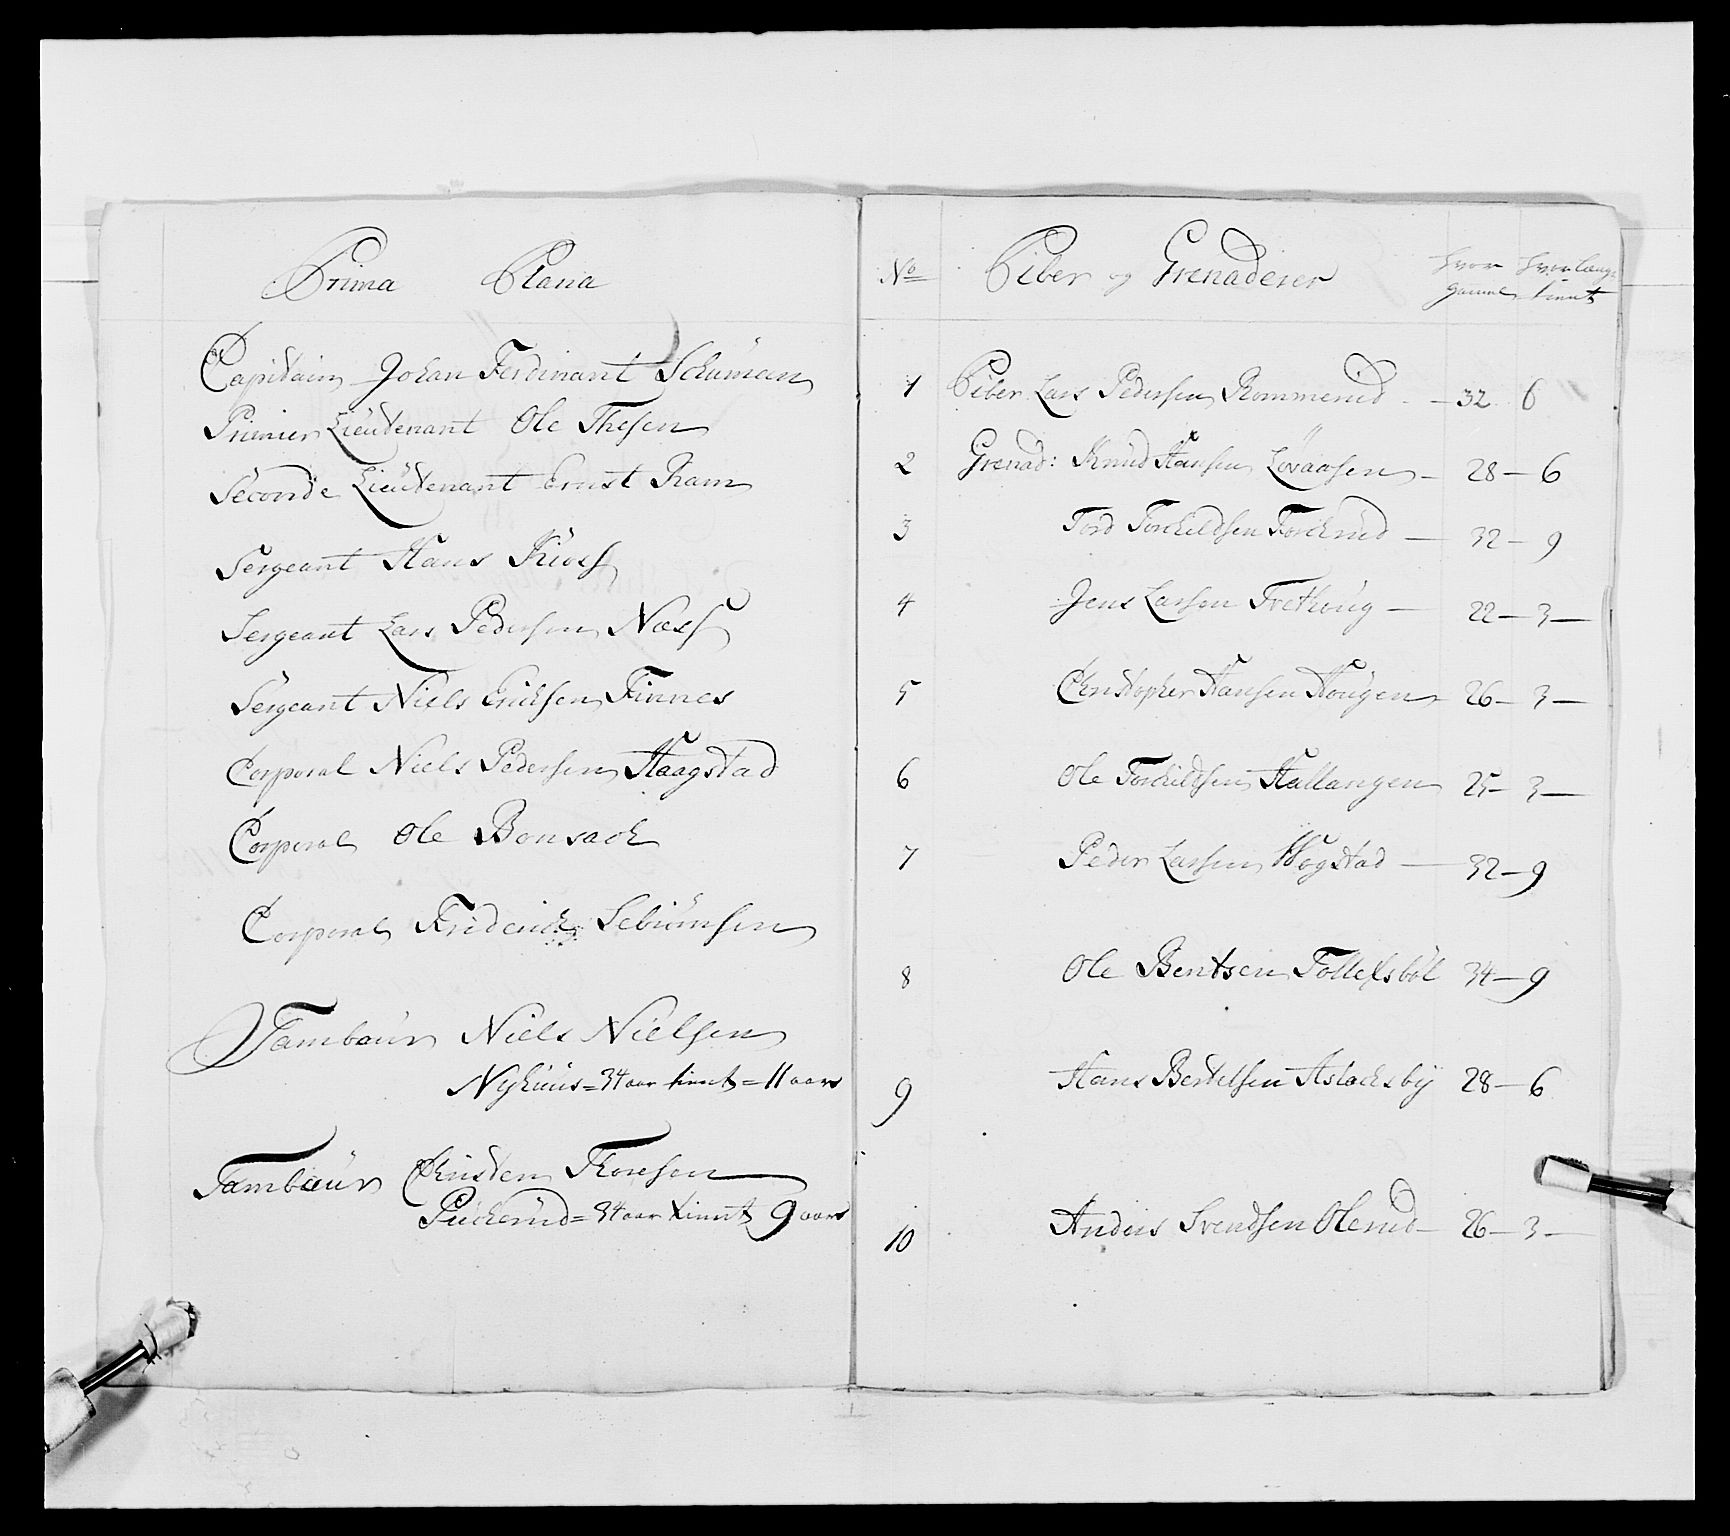 Prima Plana
Capitain Johan Ferdinant Schuman
Primier Lieutenant Ole Thesen
Seconde Lieutenant Ernst Ram
Sergeant Hans
Sergeant Lars Pedersen Næss
Sergeant Niels Erichsen Finnes
Corporal Niels Pedersen Haagstad
Corporal Ole Bonsach
Corporal Friderich Sebiömsen
Tambour Niels Nielsen
Nyhuus = 34 aar tient = 11 aars
Tambour Christen Thoresen
Puckerud = 34 aar tient 9 aars
No Piber og Grenaderer hvor gammel hvor længe tient
1 Piber Lars Pedersen Rommerud - 32 6
2 Grenad: Knud Hansen Lövaasen - 28 - 6
3 Tord Torkeldsen Torckrud - 32 - 9
4 Jens Larsen Trethoug - 22 - 3 -
5 Christopher Hansen Hougen 26 - 3 -
6 Ole Torkildsen Hallangen 25 - 3 -
7 Peder Larsen Wogstad - 32 - 9
8 Ole Bentsen Tollefsböl 34 - 9
9 Hans Bertelsen Aslachsby 28 - 6
10 Anders Svendsen Olerud - 26 - 3 -